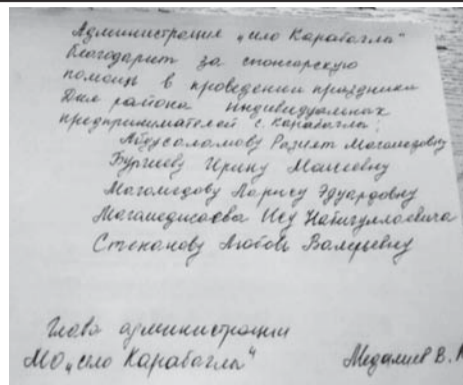 Администрация „село Карабагла"
благодарит за спонсорскую
помощь в проведении праздника
Дня района индивидуальных
предпринимателей с. Карабаглы:
Абдусаламову Разият Магомедовну
Бургиеву Ирину Моисеевну
Магомедову Ларису Эдуардовну
Магомедисаева Ису Набигуллаевича
Стеканову Любовь Валерьевну
Глава администрации
МО „село Карабагла"
Медалиев В.